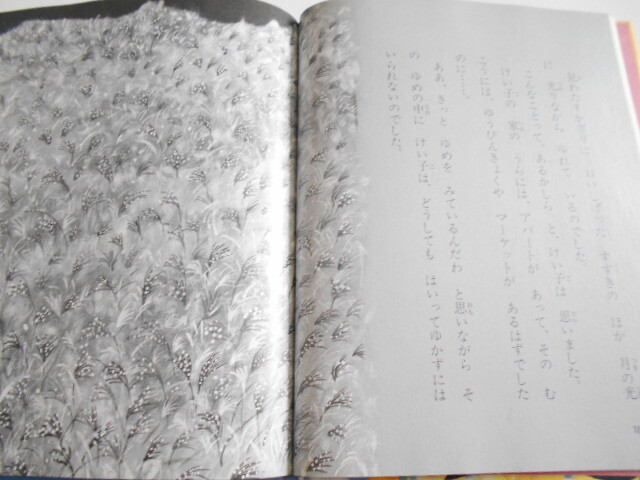 すすきの ほが 月の光
に 光りながら ゆれて いるのでした。
こんなことって、あるかしら と、けい子は 思いました。
けい子の 家の うらには、アパートが あって、その む
こうには、ゆうびんきょくや マーケットが あるはずでした
のに……。
ああ、きっと ゆめを みているんだわ と思いながら そ
の ゆめの中に けい子は、どうしても はいってゆかずには
いられないのでした。